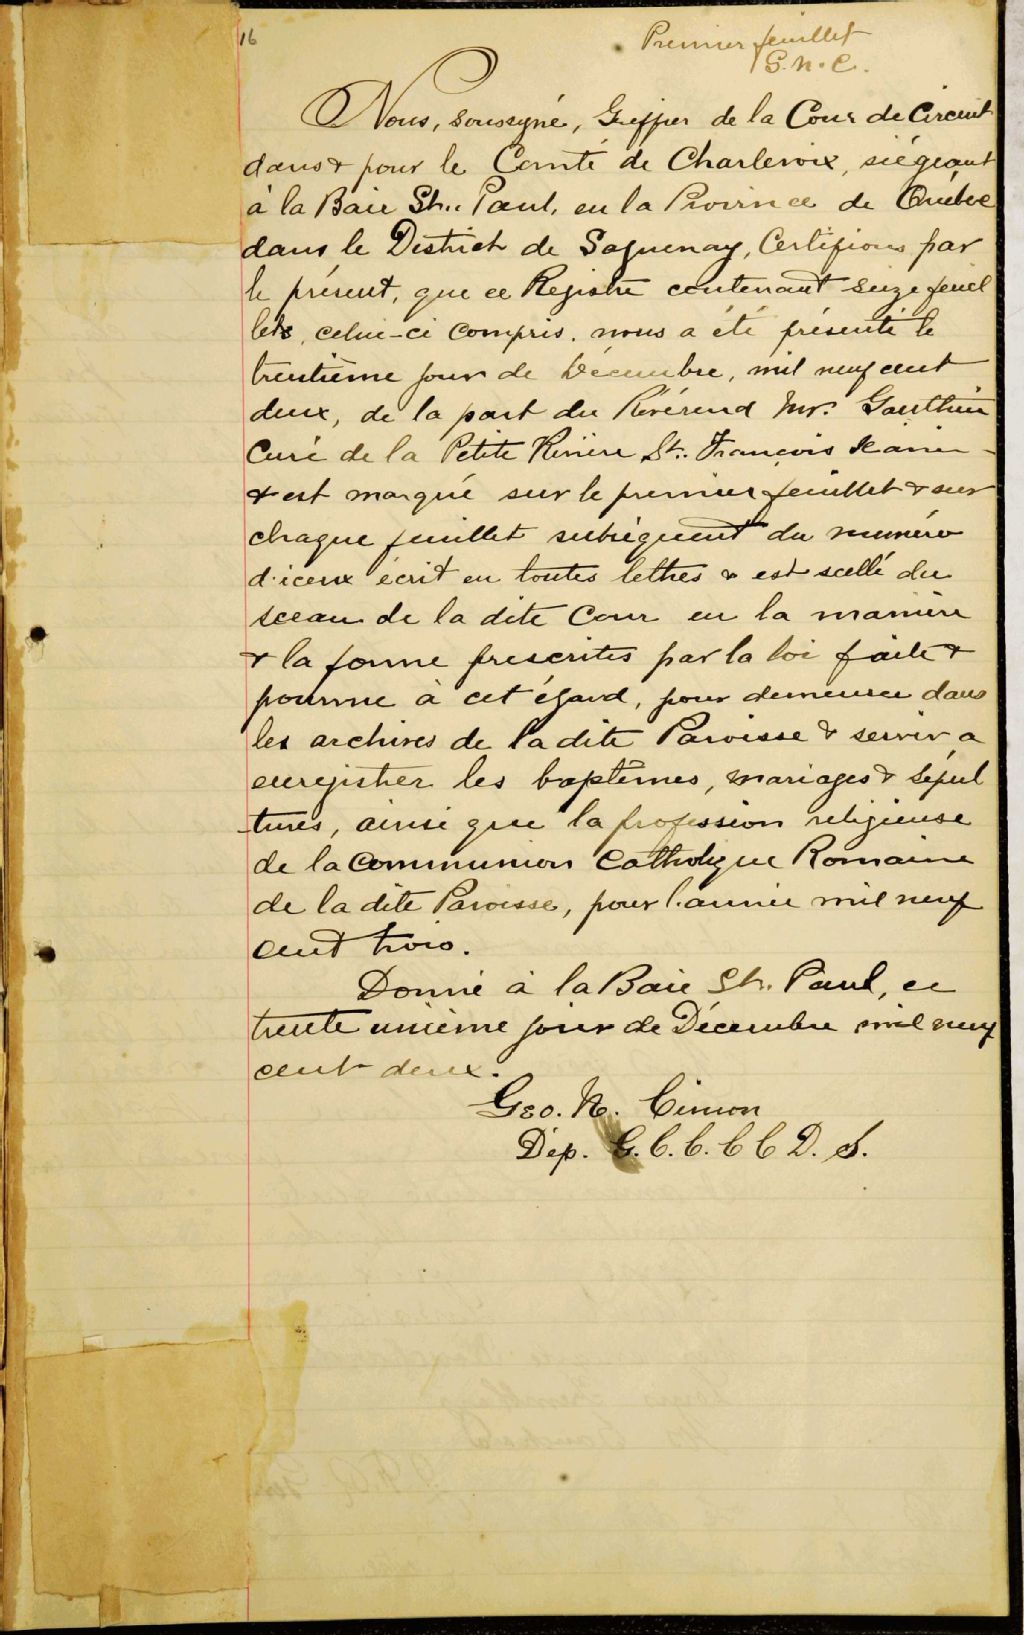 16
Premier feuillet
G. N. C.
Nous, soussigné, Greffier de la Cour de Circuit
dans & pour le Comté de Charlevoix, siégeant
à la Baie St. Paul, en la Province de Québec
dans le District de Saguenay, Certifions par
le présent, que ce Registre contenant seize feuil
lets, celui-ci compris, nous a été présenté le
trentième jour de Décembre, mil neuf cent
deux, de la part du Révérend Mr. Gauthier
Curé de la Petite Rivière St. François Xavier
& est marqué sur le premier feuillet & sur
chaque feuillet subséquent du numéro
d'iceux écrit en toutes lettres & est scellé du
sceau de la dite Cour en la manière
& la forme prescrites par la loi faite &
pourvue à cet égard, pour demeurer dans
les archives de la dite Paroisse & servir a
enregistrer les baptêmes, mariages & sépul
tures, ainsi que la profession religieuse
de la Communion Catholique Romaine
de la dite Paroisse, pour l'année mil neuf
cent trois.
Donné à la Baie St. Paul, ce
trente unième jour de Décembre mil neuf
cent deux.
Geo. N. Cimon
Dép. G. C. C. C C D. S.